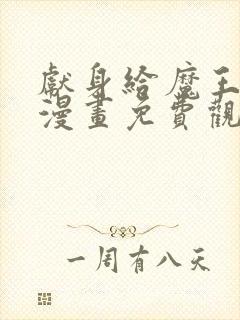 獻身給魔王
漫畫免費觀
一周有八天